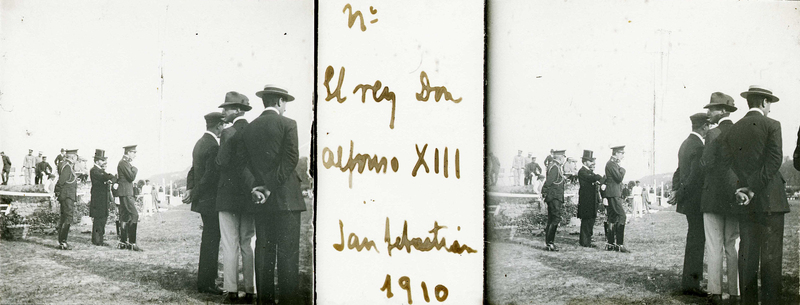 Nº
El rey Don
Alfonso XIII
San Sebastián
1910